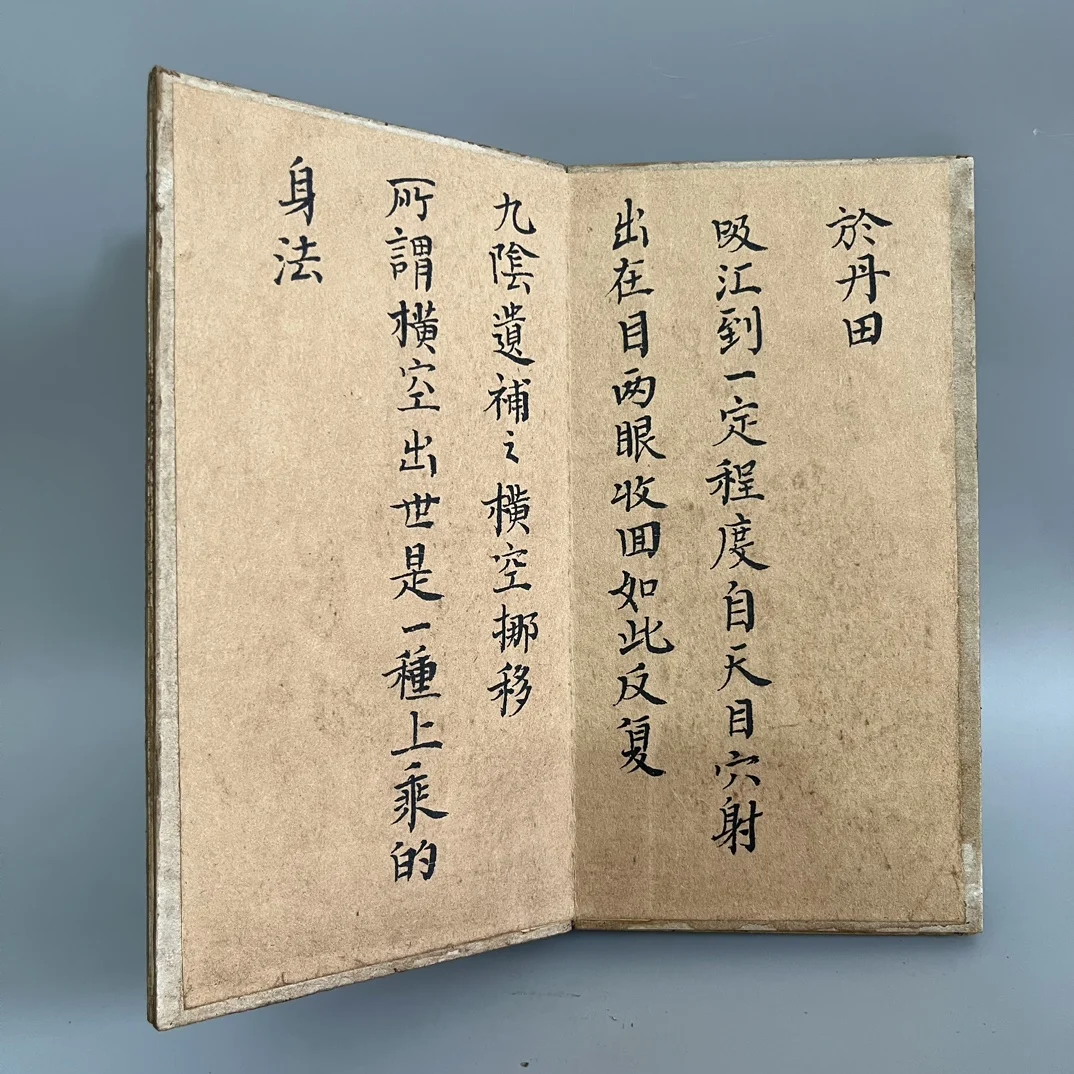 於丹田
吸汇到一定程度自天目穴射
出在目两眼收回如此反复
九陰遺補之橫空挪移
所謂橫空出世是一種上乘的
身法